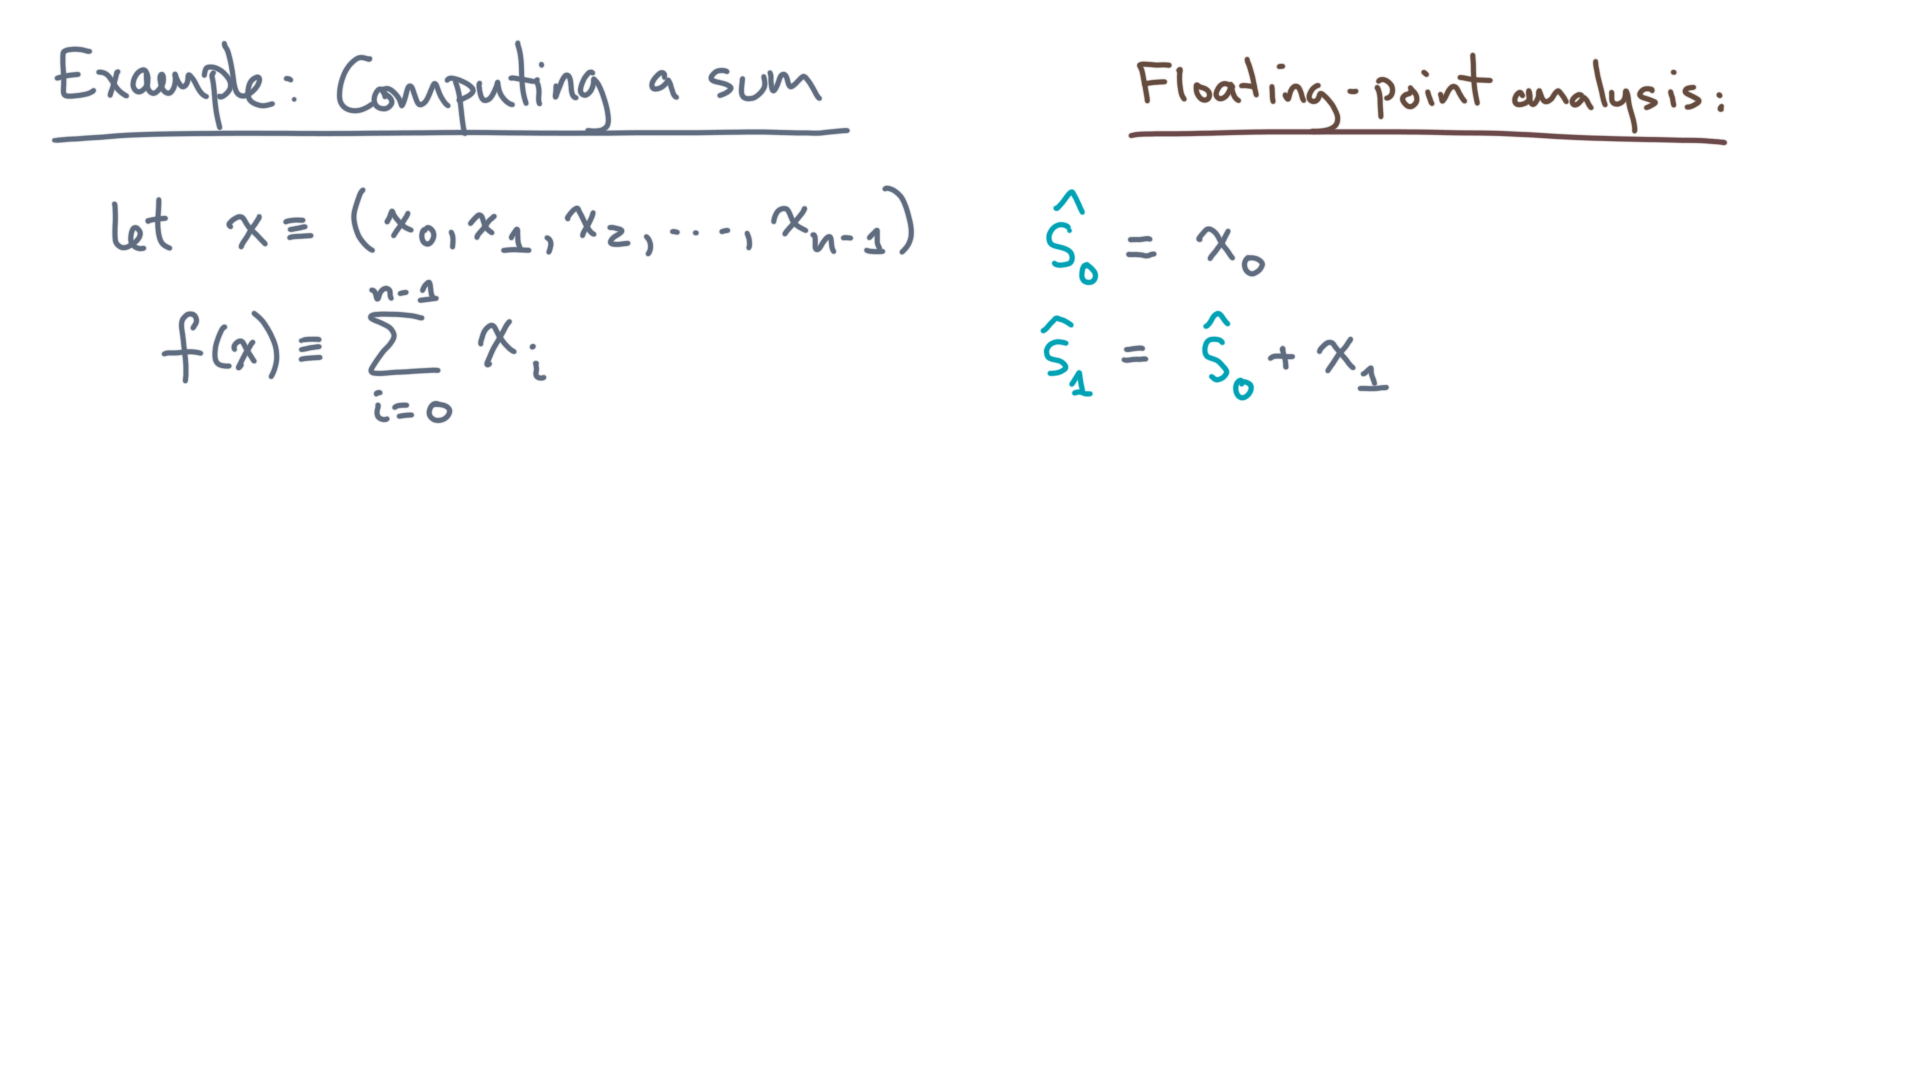 Example: Computing a sum
let x ≡ (x₀, x₁, x₂, ..., xₙ₋₁)
n-1
f(x) ≡ ∑ xᵢ
i=0
Floating-point analysis:
ŝ₀ = x₀
ŝ₁ = ŝ₀ + x₁